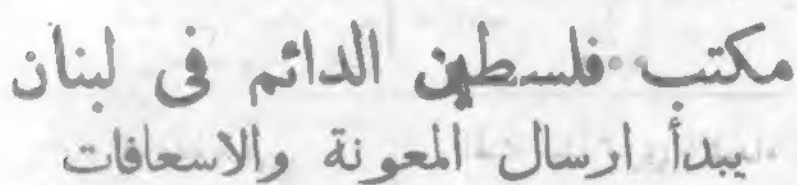 مكتب فلسطين الدائم فى لبنان
يبدأ ارسال المعونة والاسعافات